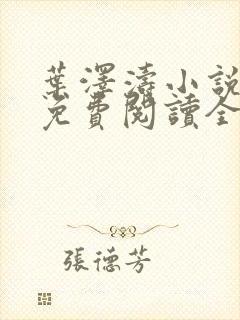 葉澤濤小說
免費閱讀全
張德芳